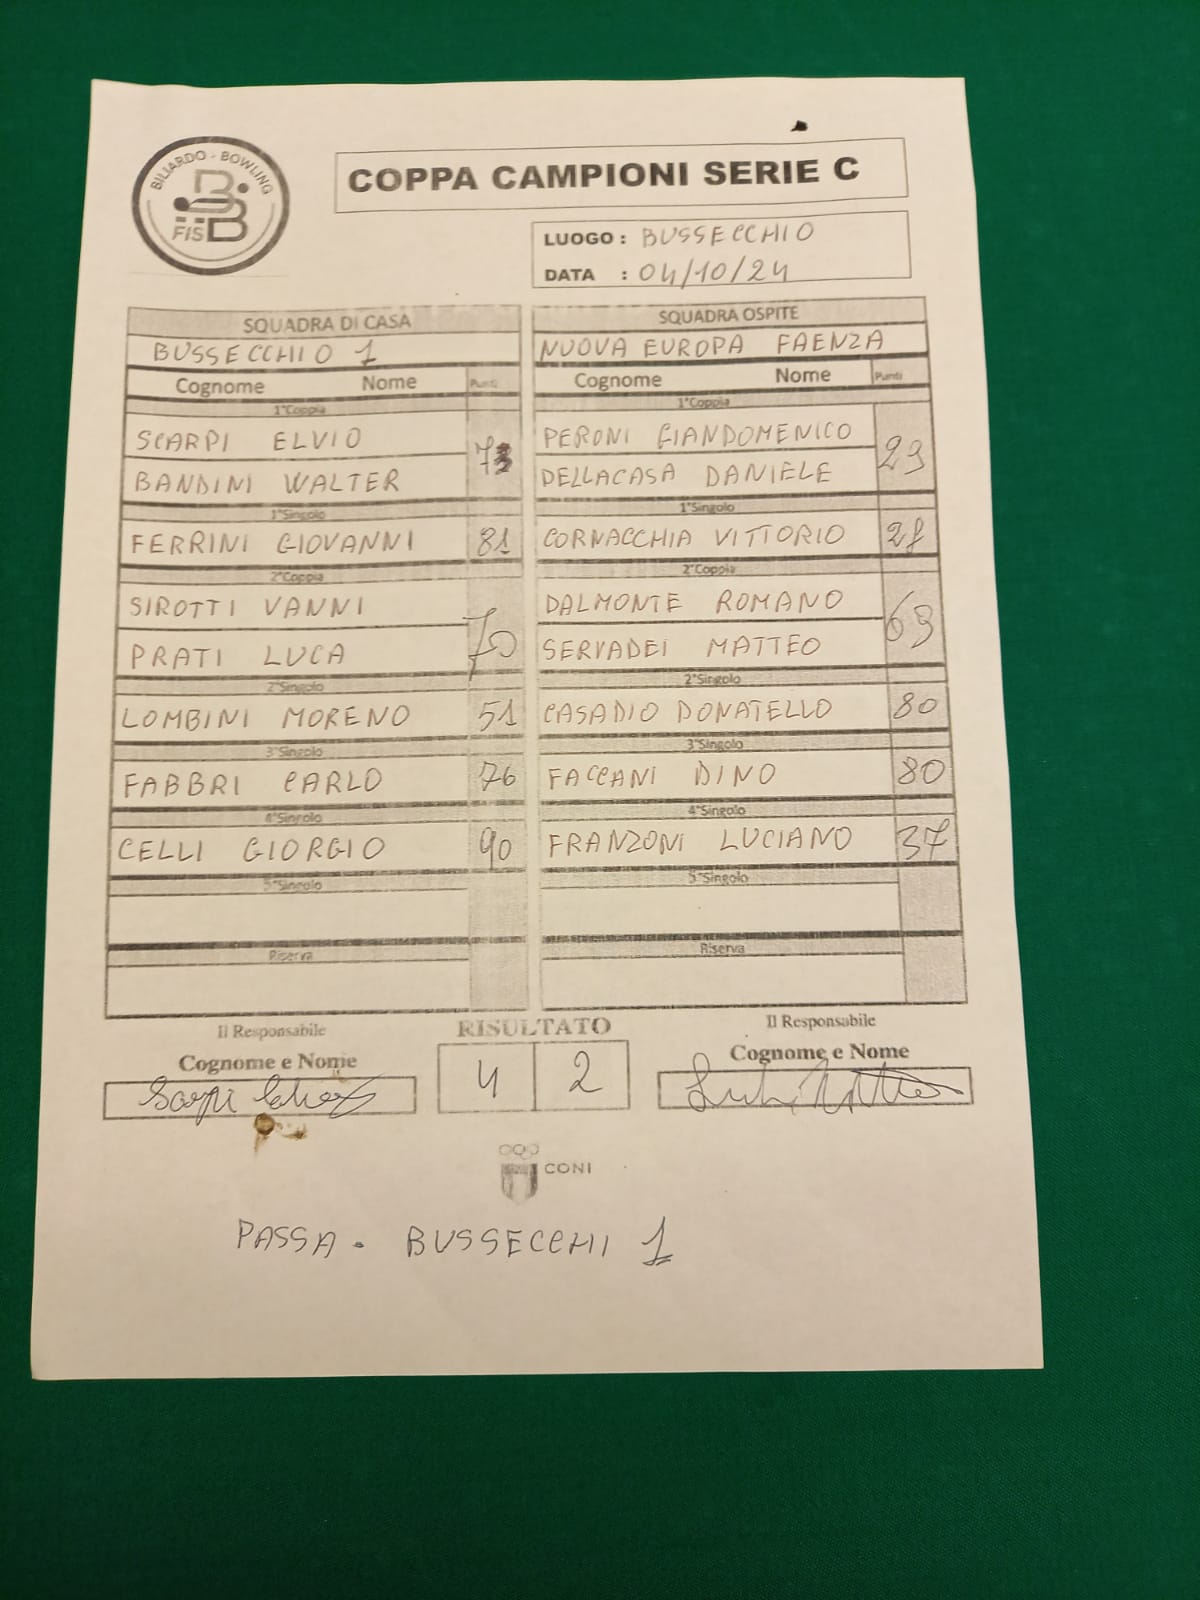 BILIARDO - BOWLING
FISBB
COPPA CAMPIONI SERIE C
LUOGO : BUSSECCHIO
DATA : 04/10/24
SQUADRA DI CASA
BUSSECCHIO 1
Cognome Nome Punti
1°Coppia
SCARPI ELVIO
73
BANDINI WALTER
1°Singolo
FERRINI GIOVANNI 81
2°Coppia
SIROTTI VANNI
70
PRATI LUCA
2°Singolo
LOMBINI MORENO 51
3°Singolo
FABBRI CARLO 76
4°Singolo
CELLI GIORGIO 90
5°Singolo
Riserva
SQUADRA OSPITE
NUOVA EUROPA FAENZA
Cognome Nome Punti
1°Coppia
PERONI GIANDOMENICO
DELLACASA DANIELE
1°Singolo
CORNACCHIA VITTORIO
2°Coppia
DALMONTE ROMANO
SERVADEI MATTEO
2°Singolo
CASADIO DONATELLO 80
3°Singolo
FACCANI DINO 80
4°Singolo
FRANZONI LUCIANO 37
5°Singolo
Riserva
Il Responsabile
Cognome e Nome
RISULTATO
4 2
Il Responsabile
Cognome e Nome
CONI
PASSA - BUSSECCHI 1